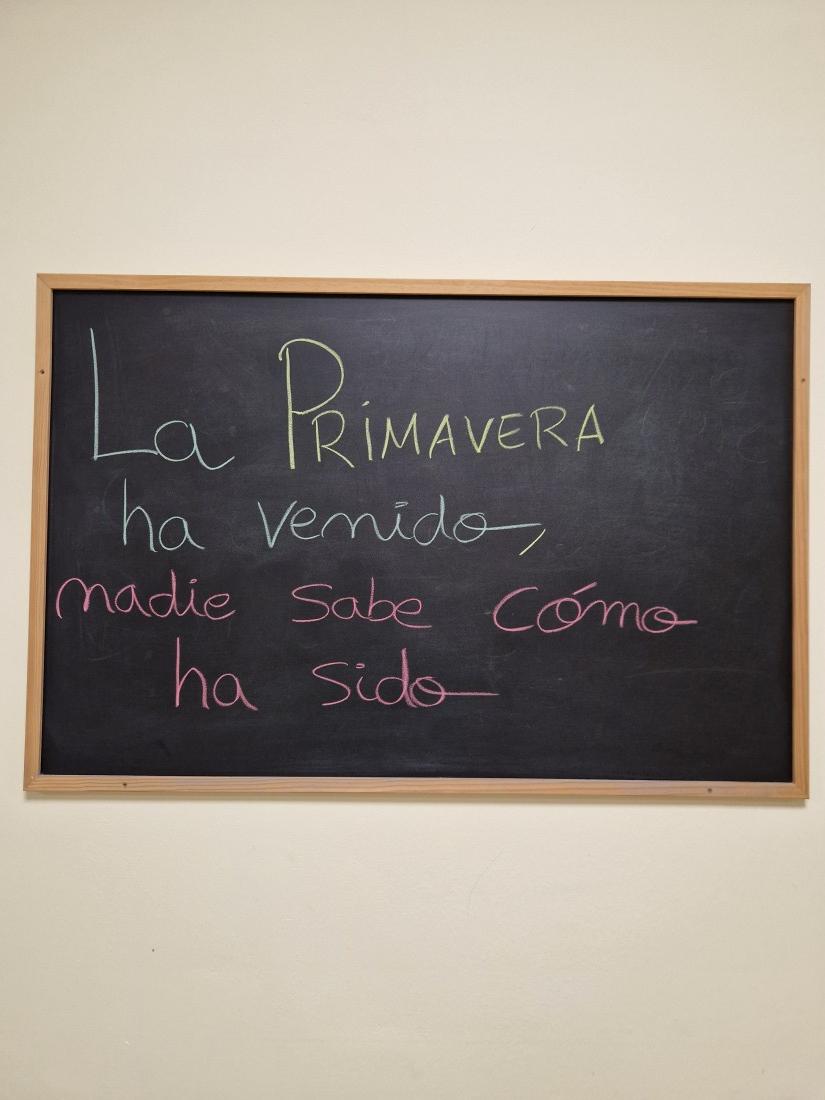 La PRiMAVERA
ha venido,
nadie sabe cómo
ha sido